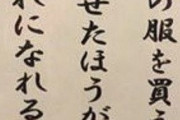 の服を買う
せたほうが
れになれる